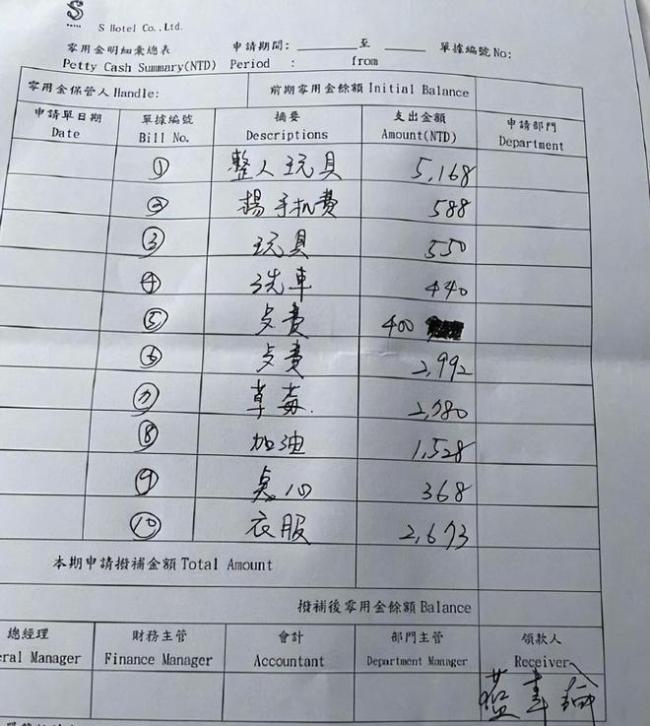 S
S Hotel Co., Ltd.
零用金明細彙總表 申請期間: ______ 至 ______ 單據編號No:
Petty Cash Summary(NTD) Period : from
零用金保管人Handle: 前期零用金餘額 Initial Balance
申請單日期 單據編號 摘要 支出金額 申請部門
Date Bill No. Descriptions Amount(NTD) Department
① 整人玩具 5,168
② 楊手扒費 588
③ 玩具 550
④ 洗車 440
⑤ 费 400
⑥ 费 2,992
⑦ 草莓. 2,980
⑧ 加油 1,528
⑨ 点心 368
⑩ 衣服 2,673
本期申請撥補金額 Total Amount
撥補後零用金餘額 Balance
總經理 財務主管 會計 部門主管 領款人
eral Manager Finance Manager Accountant Department Manager Receiver